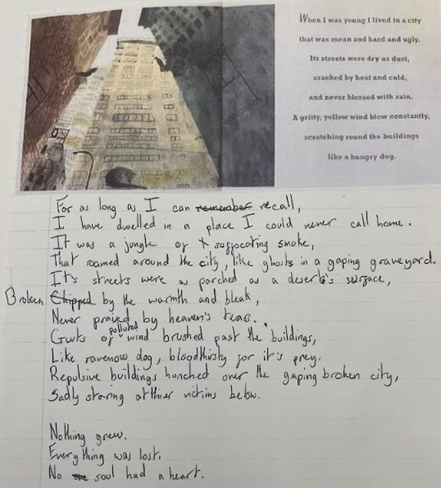 When I was young I lived in a city
that was mean and hard and ugly.
Its streets were dry as dust,
cracked by heat and cold,
and never blessed with rain.
A gritty, yellow wind blew constantly,
scratching round the buildings
like a hungry dog.
For as long as I can remember recall,
I have dwelled in a place I could never call home.
It was a jungle of suffocating smoke,
That roamed around the city, like ghosts in a gaping graveyard.
It's streets were as parched as a desert's surface,
Broken Chipped by the warmth and bleak,
Never prayed by heaven's tears.
Gusts of polluted wind brushed past the buildings,
Like ravenous dog, bloodthirsty for it's prey.
Repulsive buildings honched over the gaping broken city,
Sadly staring at thier victims below.
Nothing grew.
Everything was lost.
No soul had a heart.